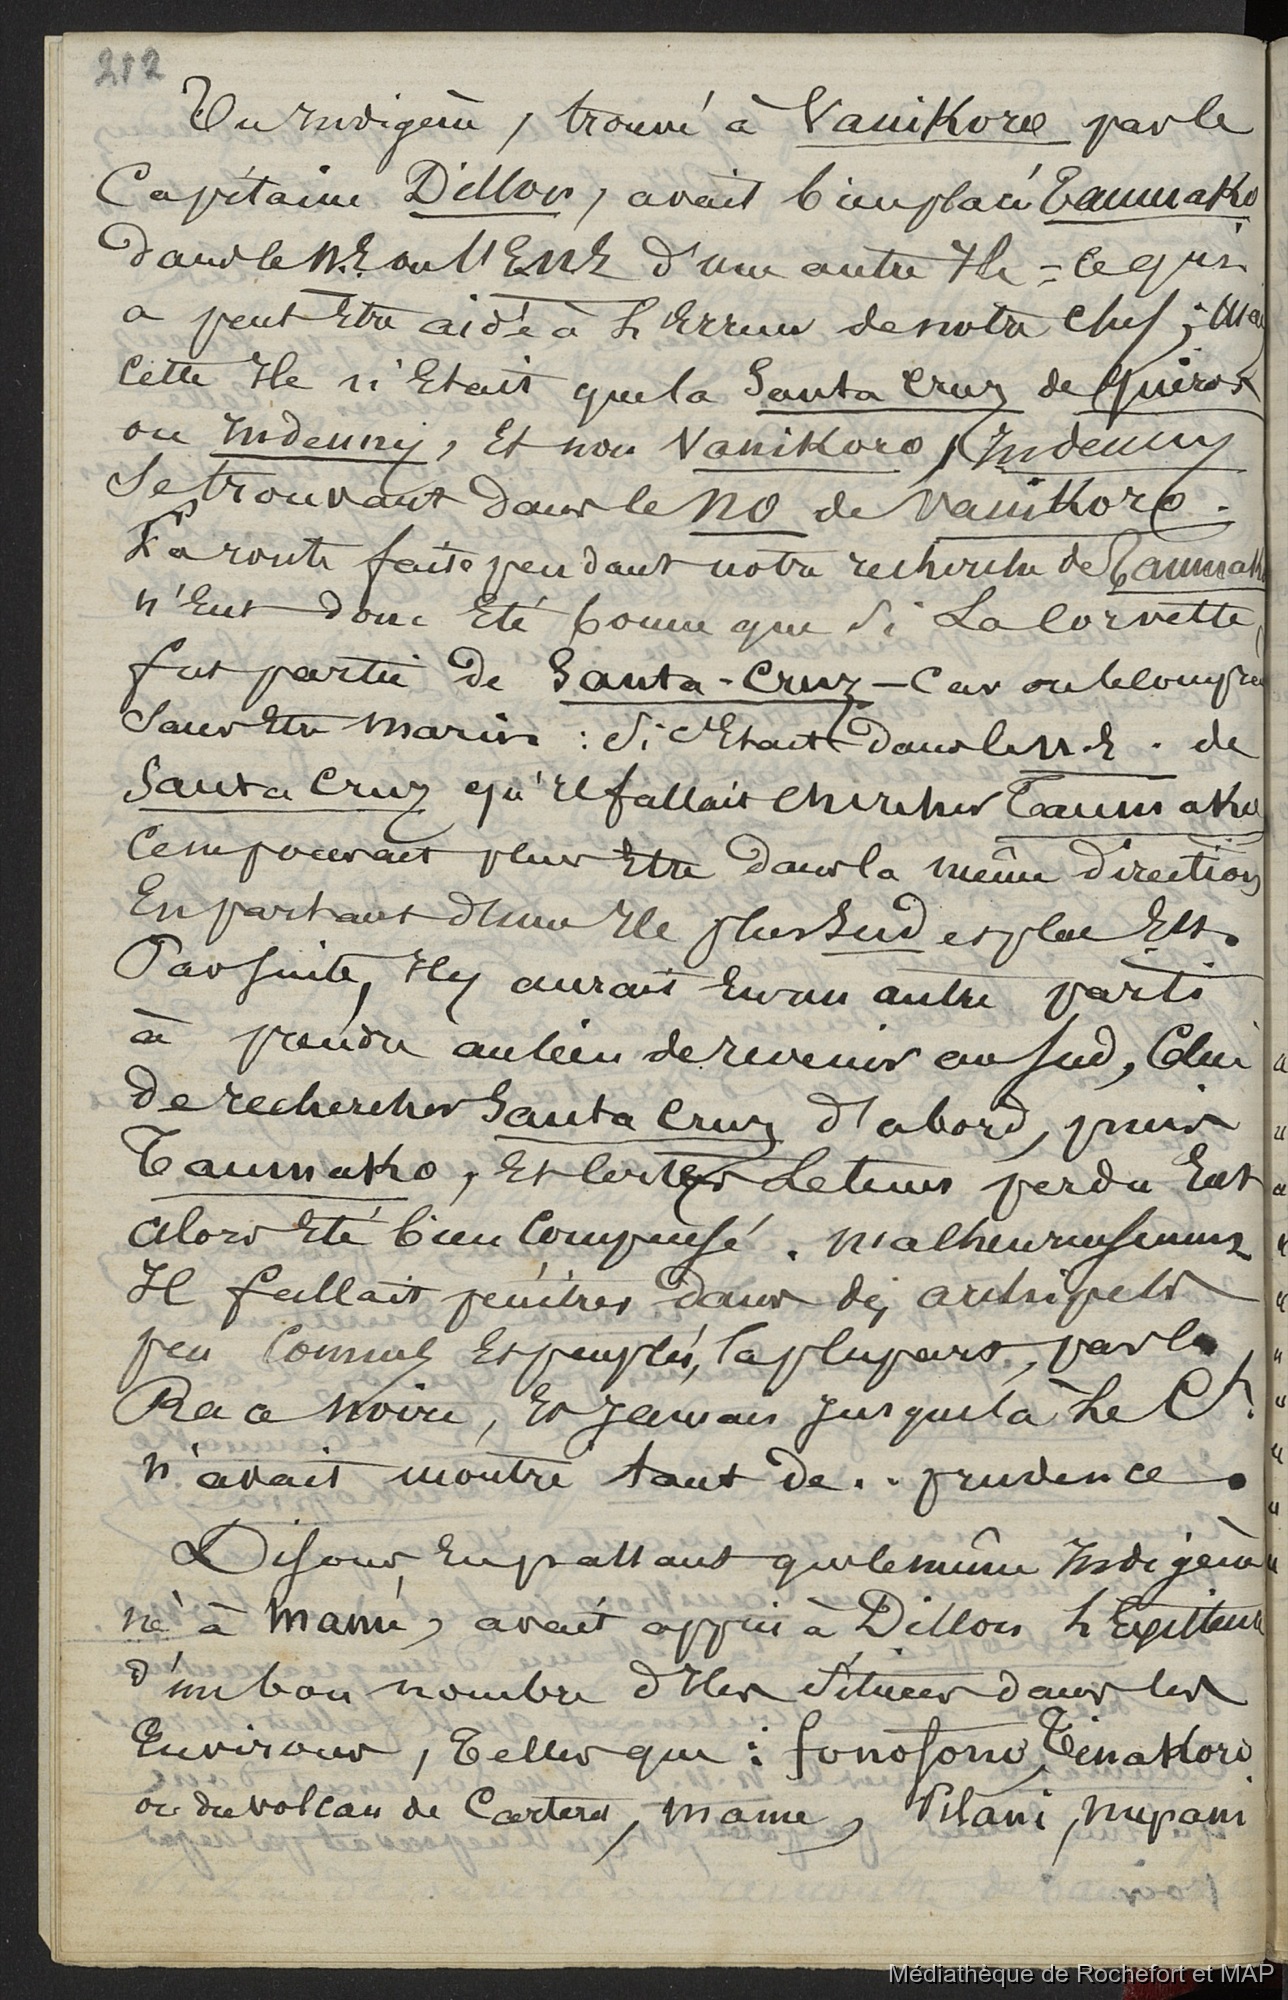 212
Un Indigène, trouvé à Vanikore par le
Capitaine Dillon, avait bien placé Taumako
dans le N.E ou l'ENE d'une autre Ile = ce qui
a peut Etre aidé à L'Erreur de notre Chef ; Mais
Cette Ile n'Etait que la Santa Cruz de Quiros
ou Indenny, Et non Vanikoro, Indenny
Se trouvant dans le NO de Vanikoro.
La route faite pendant notre recherche de Taumako
n'Eut donc Eté bonne que Si La Corvette,
fut partie de Santa-Cruz - Car on le comprend
Sans Etre Marin : Si c'Etait dans le N.E. de
Santa Cruz qu'Il fallait Chercher Taumako
Ce ne pouvait plus Etre dans la même direction
En partant d'une Ile plus Sud et plus Est.
Par suite, Il y aurait Eu un autre parti
à prendre au lieu de revenir au Sud, Celui
de rechercher Santa Cruz d'abord, puis
Taumako, Et certes Le temps perdu Eut
alors Eté bien Compensé. Malheureusement
Il fallait pénétrer dans des archipels
peu Connus Et peuplés, la plupart, par la
Race Noire, Et Jamais Jusque là Le Ct.
n'avait montré tant de.. prudence.
Disons En passant que le même Indigène
né à Mamé, avait appris à Dillon L'Existence
d'un bon nombre d'Iles Situées dans les
Environs, Telles que : fonofono, Tinakoro
ou du volcan de Carteret, Mame, Pilani, Nupani